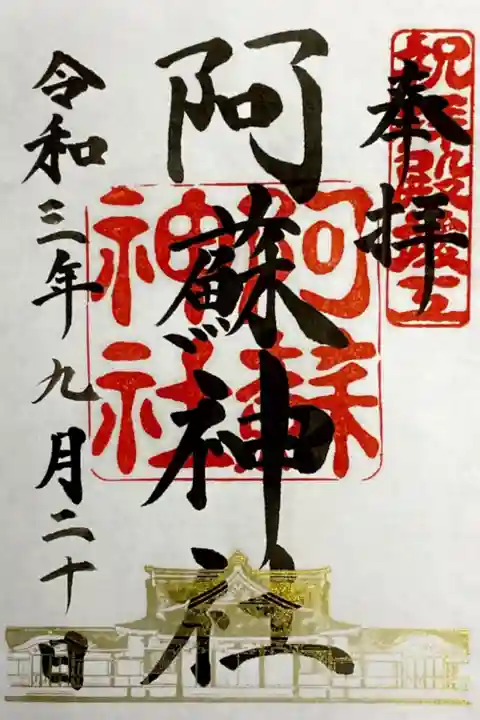 奉拝
祝拝殿竣工
阿蘇神社
阿蘇神社
令和三年九月二十日